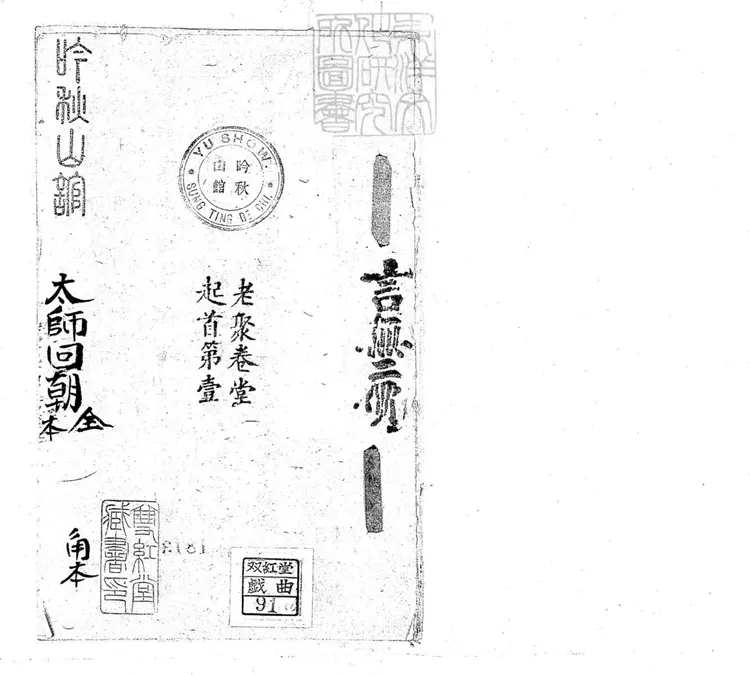 東洋文
化研究
所圖書
言無二價
YU SHOW.
吟秋
山館
SUNG TING DE CHI.
老聚卷堂
起首第壹
吟秋山館
太師回朝
全
本
角本
雙紅堂
藏書印
3181
双紅堂
戲曲
91